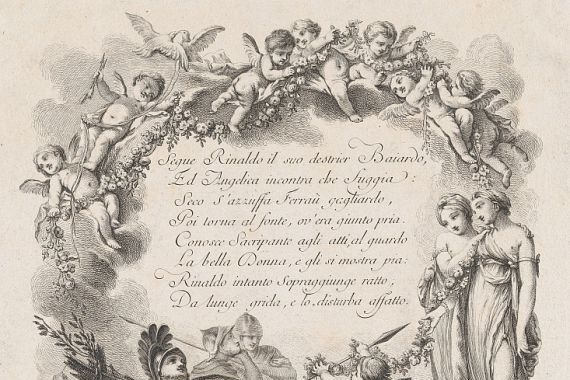 Segue Rinaldo il suo destrier Baiardo,
Ed Angelica incontra che fuggia:
Seco s'azzuffa Ferraù gagliardo,
Poi torna al fonte, ov'era giunto pria.
Conosce Sacripante agli atti, al guardo
La bella Donna, e gli si mostra pia:
Rinaldo intanto Sopraggiunge ratto,
Da lunge grida, e lo disturba affatto.